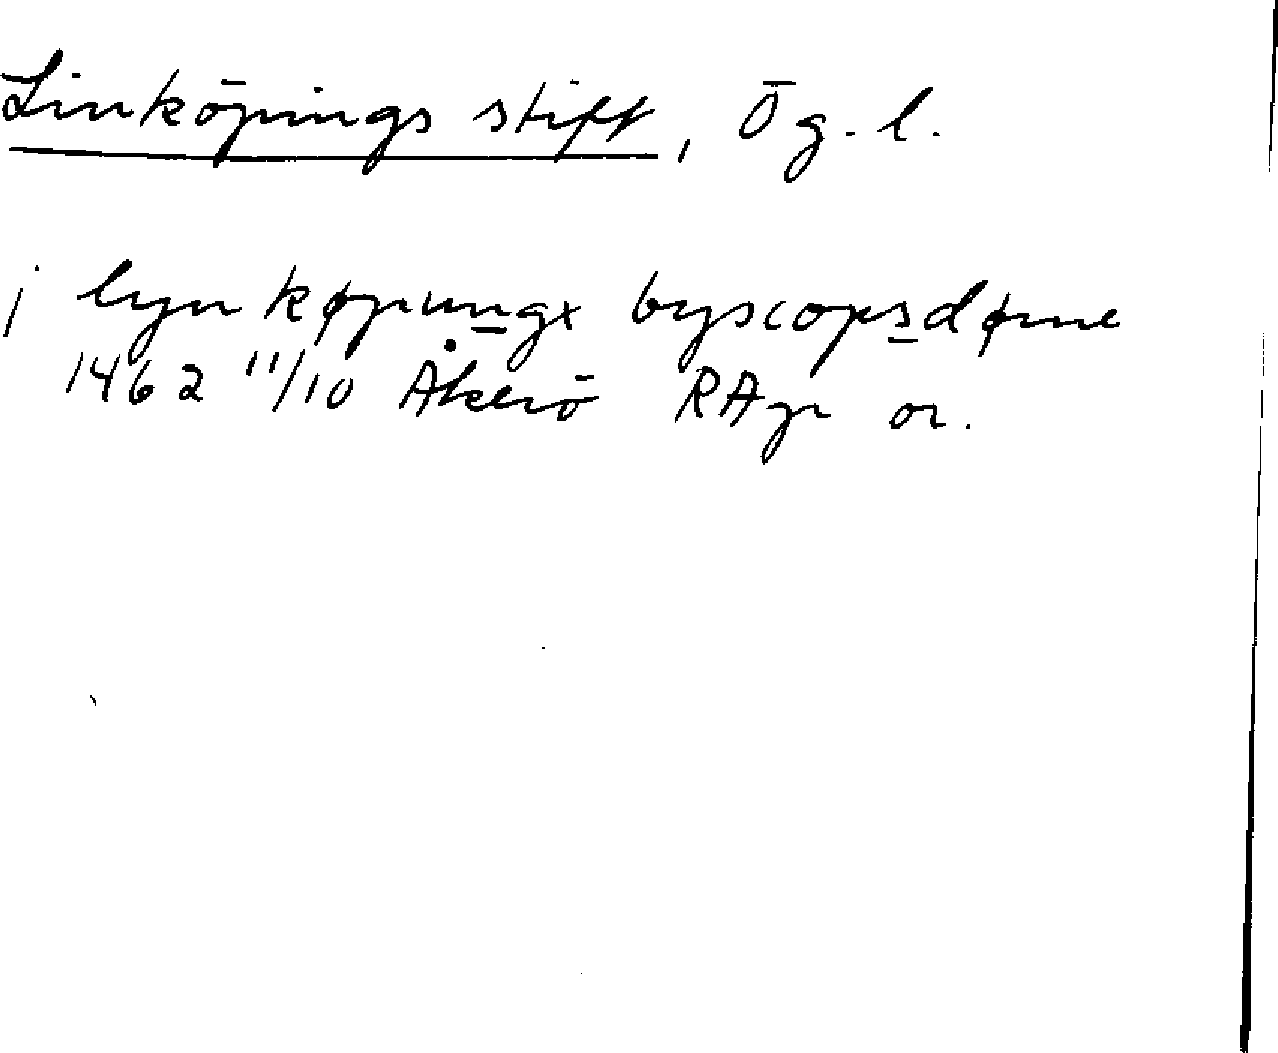 Linköpings stift, Ög. l.
i lynkøpungx byscopsdøme
1462 11/10 Åkerö RAp or.